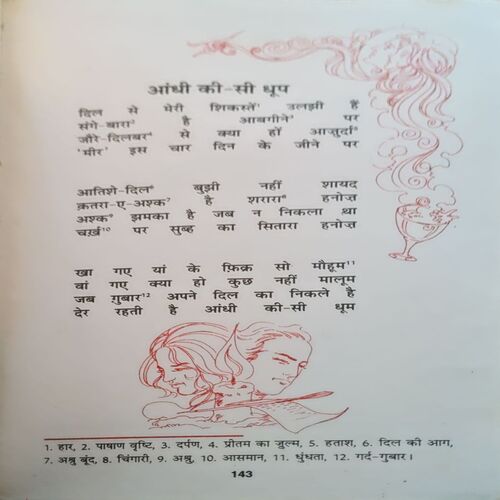 आंधी की-सी धूप
दिल से मेरी शिकस्तें¹ उलझी हैं
संगे-बारा² है आबगीने³ पर
जौरे-दिलबर⁴ से क्या हों आज़ुर्दा⁵
'मीर' इस चार दिन के जीने पर
आतिशे-दिल⁶ बुझी नहीं शायद
क़तरा-ए-अश्क⁷ है शरारा⁸ हनोज़
अश्क⁹ झमका है जब न निकला था
चर्ख़¹⁰ पर सुब्ह का सितारा हनोज़
खा गए यां के फ़िक्र सो मौहूम¹¹
वां गए क्या हो कुछ नहीं मालूम
जब ग़ुबार¹² अपने दिल का निकले है
देर रहती है आंधी की-सी धूम
1. हार, 2. पाषाण वृष्टि, 3. दर्पण, 4. प्रीतम का ज़ुल्म, 5. हताश, 6. दिल की आग,
7. अश्रु बूंद, 8. चिंगारी, 9. अश्रु, 10. आसमान, 11. धुंधता, 12. गर्द-गुबार।
143